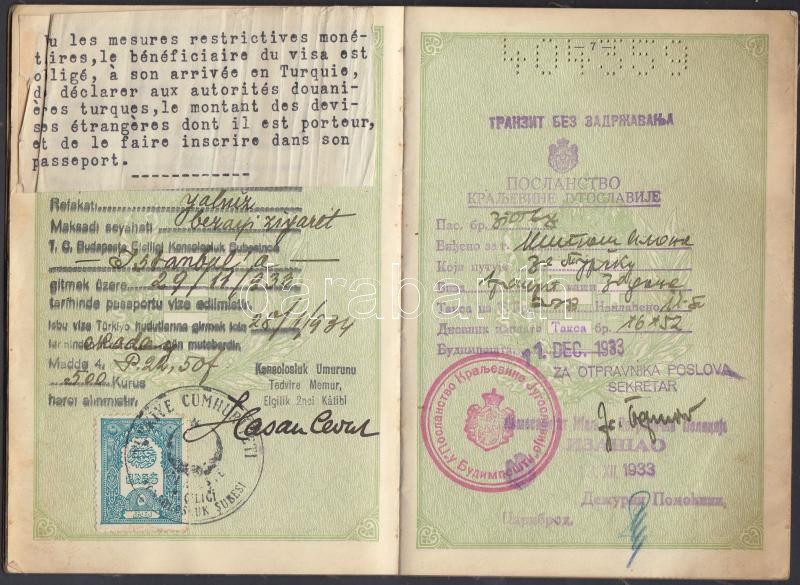 Vu les mesures restrictives moné-
taires, le bénéficiaire du visa est
obligé, à son arrivée en Turquie,
de déclarer aux autorités douani-
ères turques, le montant des devi-
ses étrangères dont il est porteur,
et de le faire inscrire dans son
passeport.
Refakati yalnız
Maksadı seyahati berayi ziyaret
T. C. Budapeste Elçiliği Konsolosluk Şubesince
İstanbul'a
gitmek üzere 29/11/933
tarihinde pasaportu vize edilmiştir.
İşbu vize Türkiye hudutlarına girmek için 28/1/934
tarihine kadar muteberdir.
Madde 4. P. 22,50 f
500 Kuruş
harcı alınmıştır.
Konsolosluk Umurunu
Tedvire Memur,
Elçilik 2nci Kâtibi
Hasan Cevat
TÜRKİYE CUMHURİYETİ
ELÇİLİĞİ
KONSOLOSLUK ŞUBESİ
- 7 -
404359
ТРАНЗИТ БЕЗ ЗАДРЖАВАЊА
ПОСЛАНСТВО
КРАЉЕВИНЕ ЈУГОСЛАВИЈЕ
Пас. бр.
Виђено за г.
Који путује за Турску
Виза
Такса по Наплаћено
Дневник наплате Такса бр. 16152
Будимпешта, 11. DEC. 1933
ZA OTPRAVNIKA POSLOVA
SEKRETAR
Посланство Краљевине Југославије у Будимпешти
ИЗАШАО
XII 1933
Дежурни Помоћник,
Цариброд.
darabanth